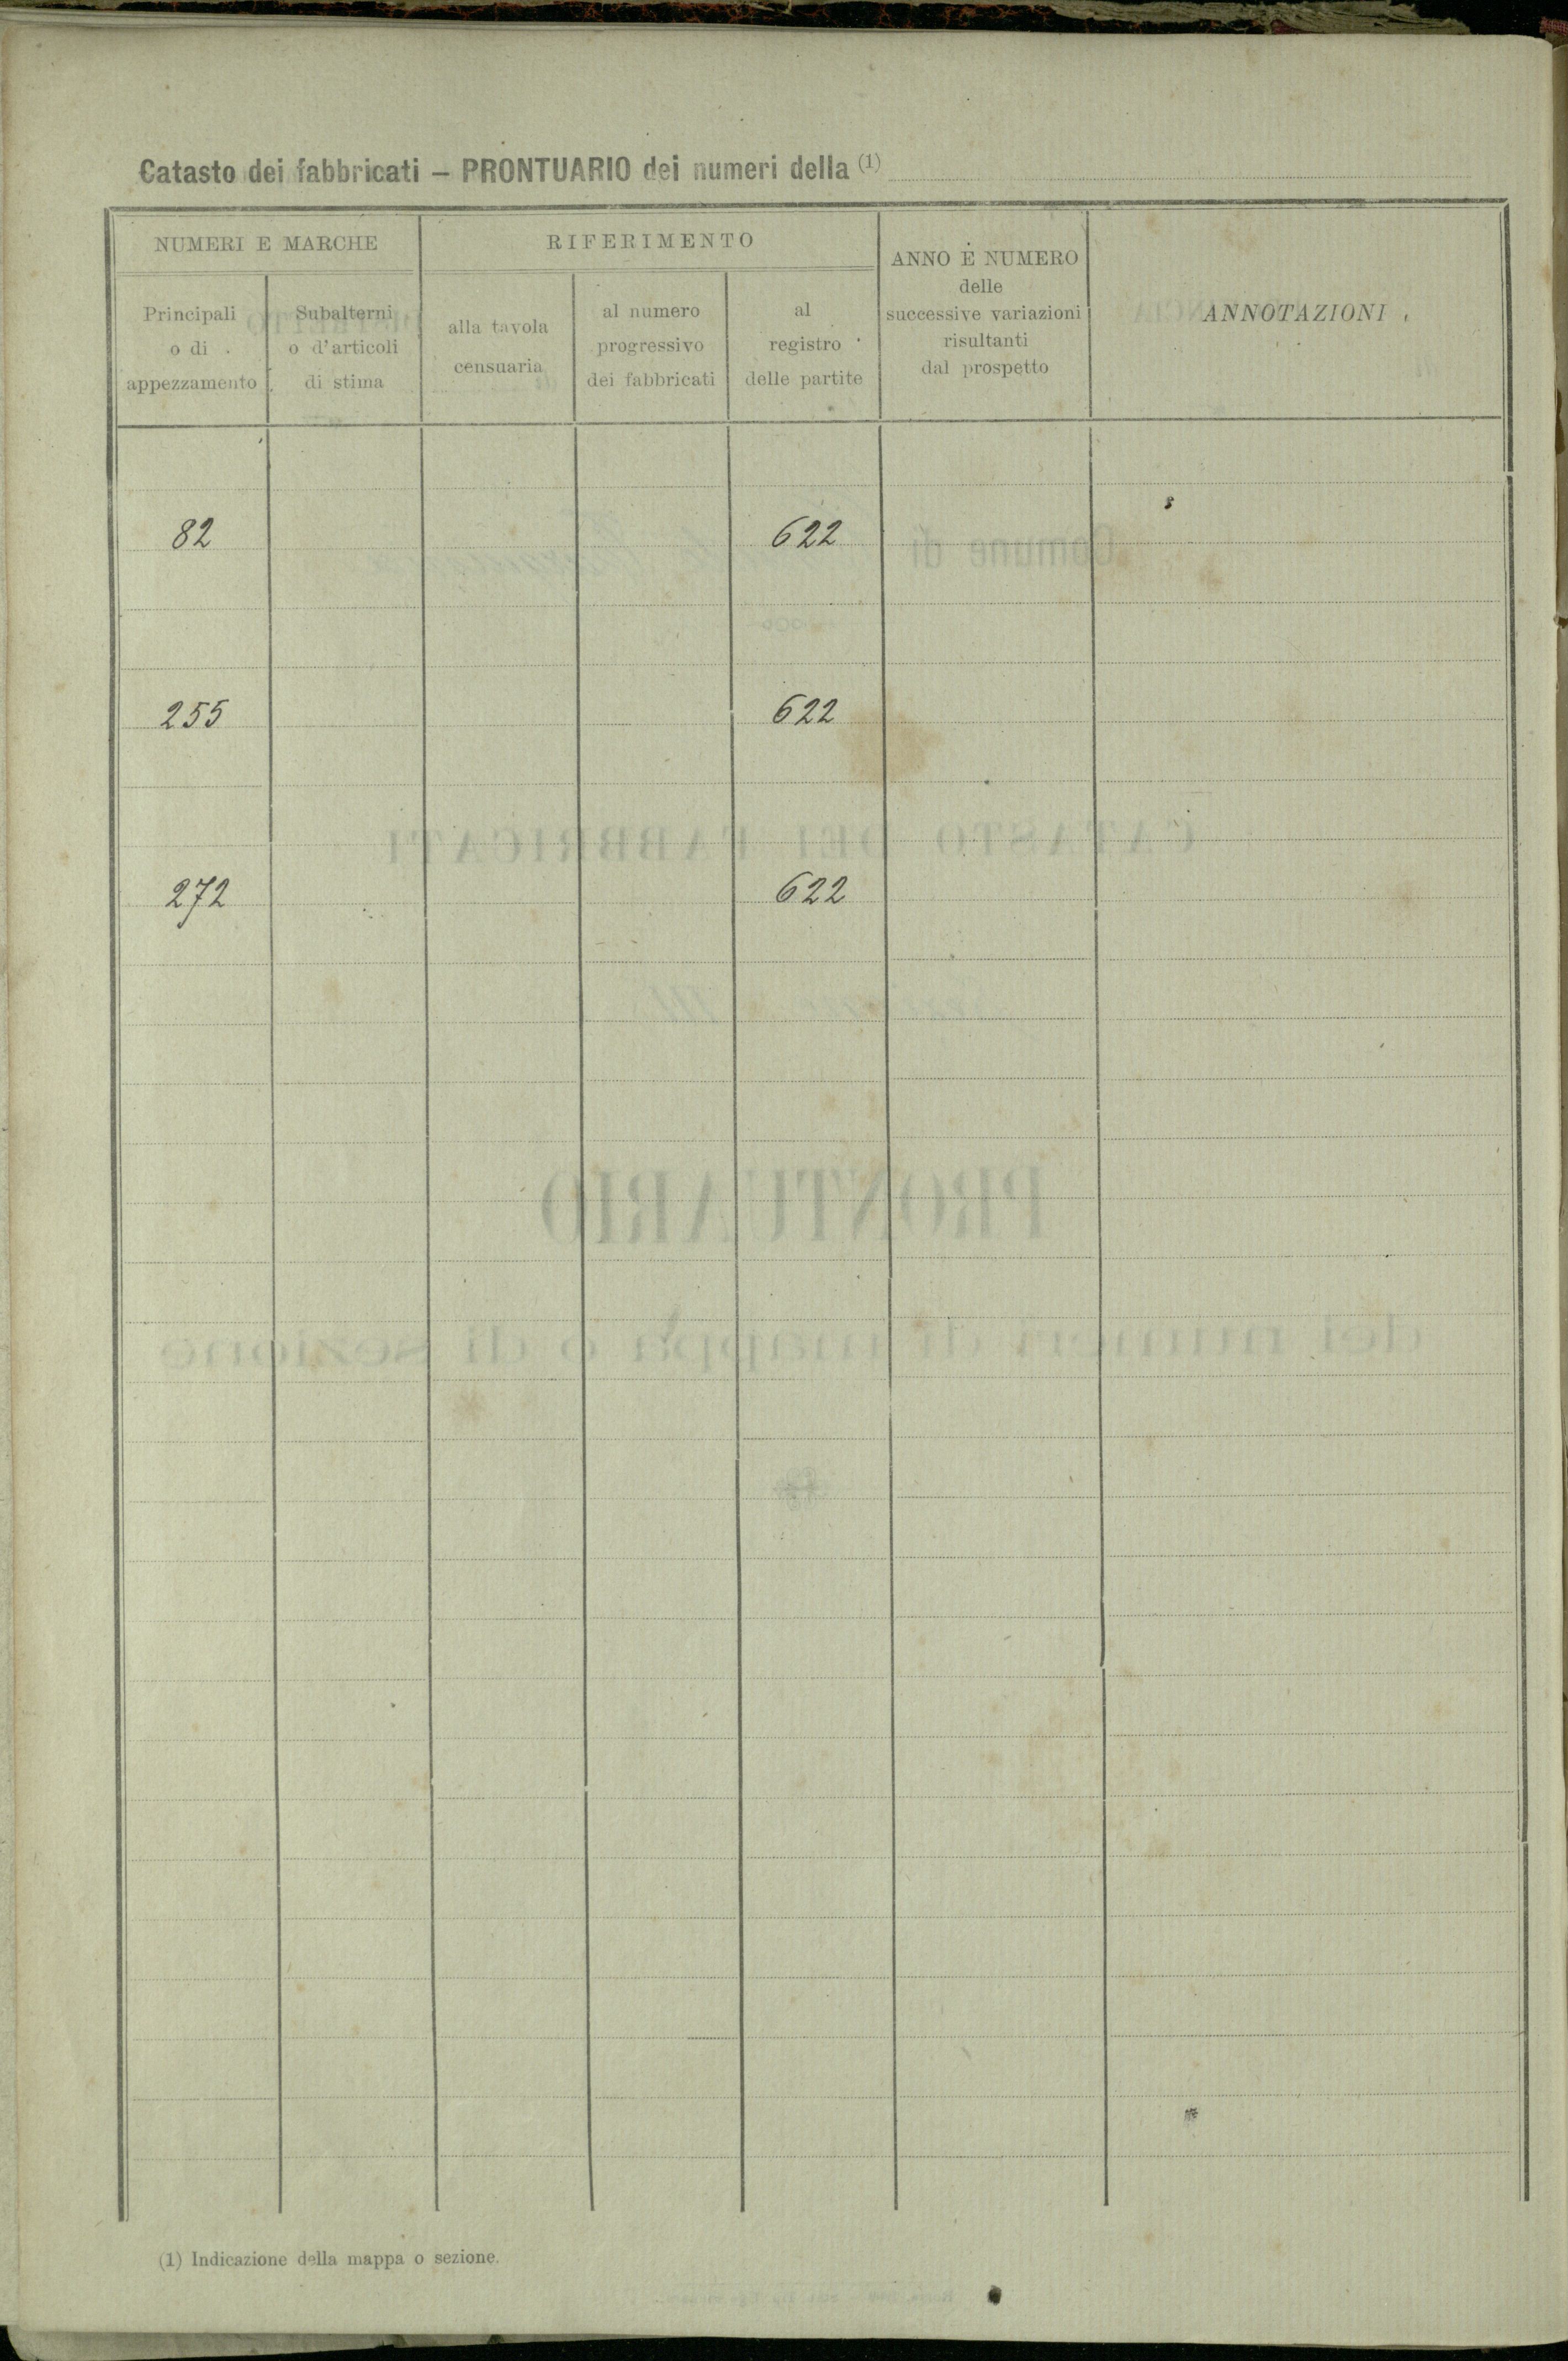 Catasto dei fabbricati – PRONTUARIO dei numeri della (1)
NUMERI E MARCHE
RIFERIMENTO
ANNO E NUMERO
delle
successive variazioni
risultanti
dal prospetto
ANNOTAZIONI
Principali
o di
appezzamento
Subalterni
o d'articoli
di stima
alla tavola
censuaria
al numero
progressivo
dei fabbricati
al
registro
delle partite
82 622
255 622
272 622
(1) Indicazione della mappa o sezione.